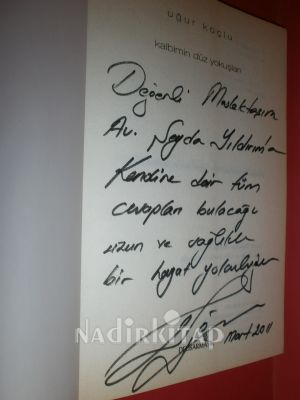 uğur koçlu
kalbimin düz yokuşları
Değerli Meslektaşım
Av. Neyda Yıldırım'a
Kendine dair tüm
cevapları bulacağı
uzun ve sağlıklı
bir hayat yolculuğu
NADİRKİTAP
Mart 2011